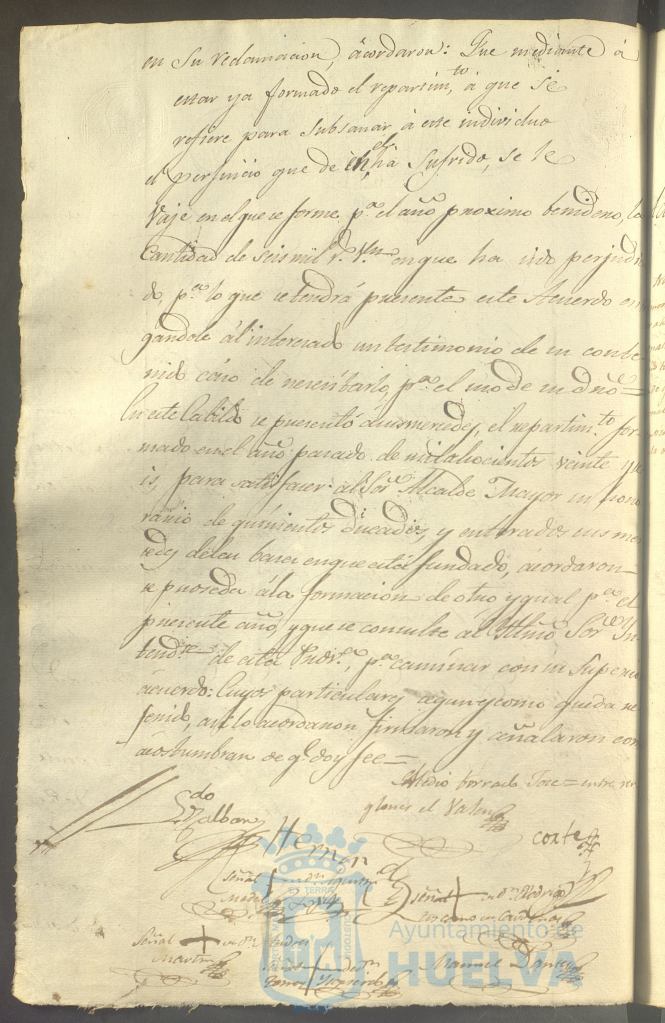 en su reclamacion, acordaron: Que mediante á
estar ya formado el repartim.to á que se
refiere para subsanar á este individuo
el perjuicio que de el ha sufrido, se le
vaje en el que se forme p.a el año proximo benidero, la
Cantidad de seis mil r.s V.n en que ha sido perjudi
do, p.a lo que se tendrá presente este Acuerdo en
gandole al interesado un testimonio de su conte
nido caso de necesitarlo, p.a el uso de su dro=
En este Cabildo se presentó á sus mercedes, el repartim.to for
mado en el año pasado de mil ochocientos veinte y se
is, para satisfacer al Sor Alcalde Mayor su hono
rario de quinientos Ducados, y enterados sus mer
cedes de las bases en que está fundado, acordaron
se proseda á la formacion de otro ygual p.a el
presente año, y que se consulte al Yltmo Sor Yn
tend.te de esta Prov.a, p.a caminar con su superior
acuerdo: Cuyos particulares segun y como queda re
ferido, asi lo acordaron firmaron y señalaron como
acostumbran de q.e doy fee=
Medio borrado = entre rer
glones el Valen
Ldo
Hernan
Cortes
Señal + de
Señal + de D.n Rodrigo
Señal + de D.n Andres
Martin
Señal + de D.n
Manuel
Ayuntamiento de
HUELVA